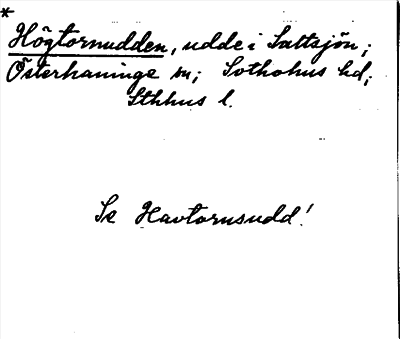 *
Högtornudden, udde i Saltsjön;
Österhaninge sn; Sotholms hd;
Sthlms l.
Se Havtornsudd!